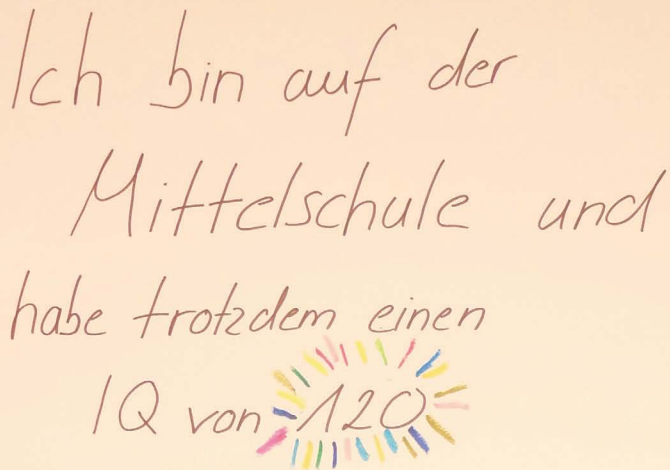 Ich bin auf der
Mittelschule und
habe trotzdem einen
IQ von 120